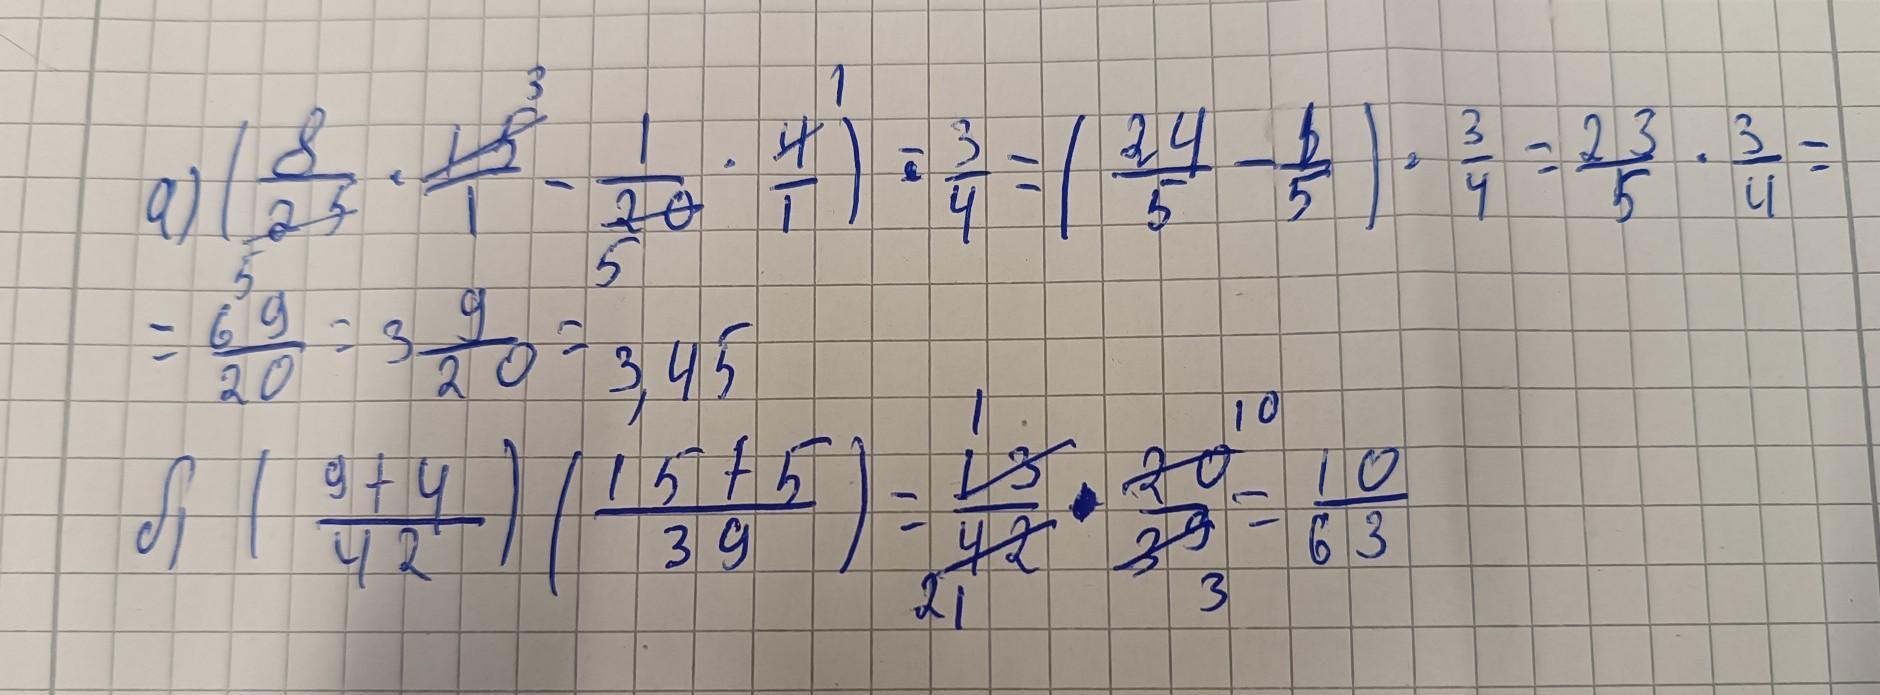 а) (8/25 · 15/1 - 1/20 · 4/1) : 3/4 = (24/5 - 1/5) · 3/4 = 23/5 · 3/4 =
= 69/20 = 3 9/20 = 3,45
б) (9+4/42) (15+5/39) = 13/42 · 20/39 = 10/63